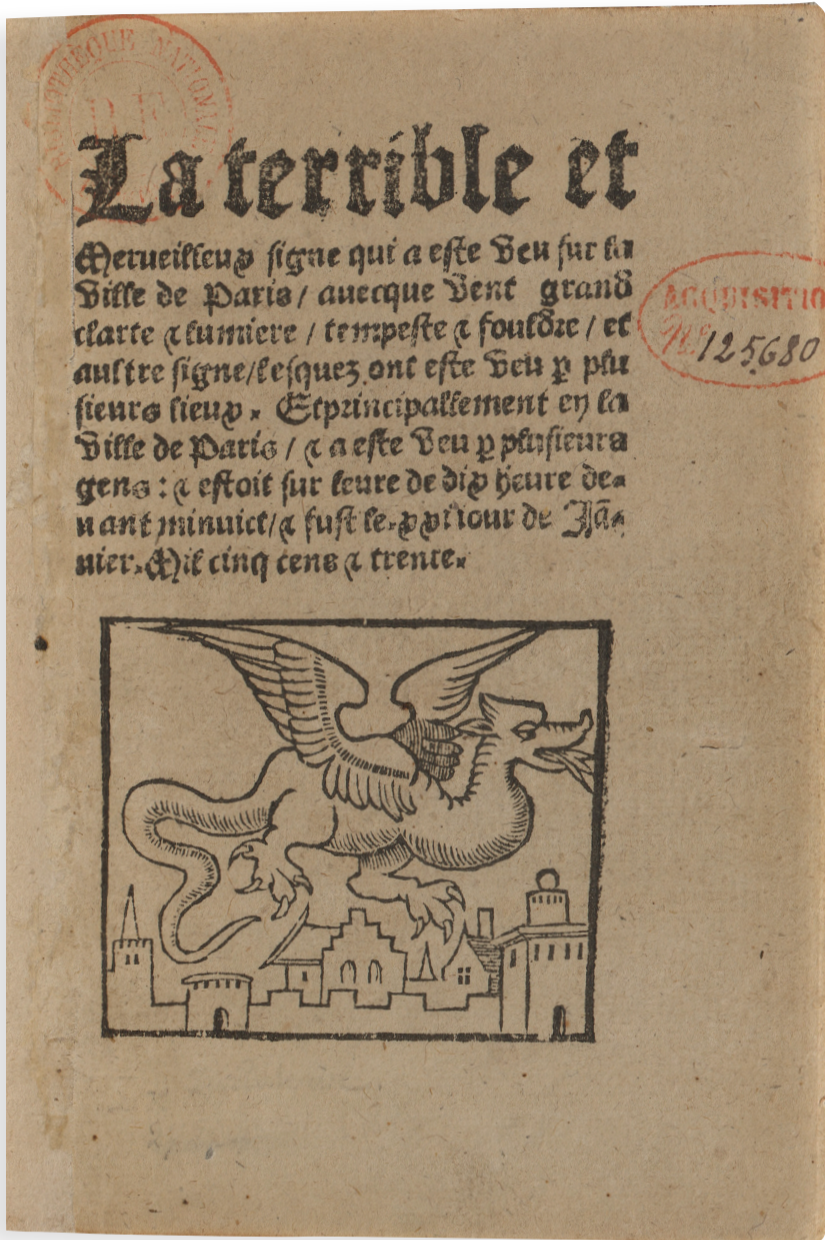 La terrible et
Merueilleux signe qui a este veu sur la
ville de Paris / auecque vent grand
clarte & lumiere / tempeste & fouldre / et
aultre signe / lesquez ont este veu ꝑ plu
sieurs lieux. Et principallement en la
ville de Paris / & a este veu ꝑ plusieurs
gens : & estoit sur leure de dix heure de-
uant minuict / & fust le. xxvi iour de Jã-
uier. Mil cinq cens & trente.
BIBLIOTHEQUE NATIONALE
ACQUISITIO
125680